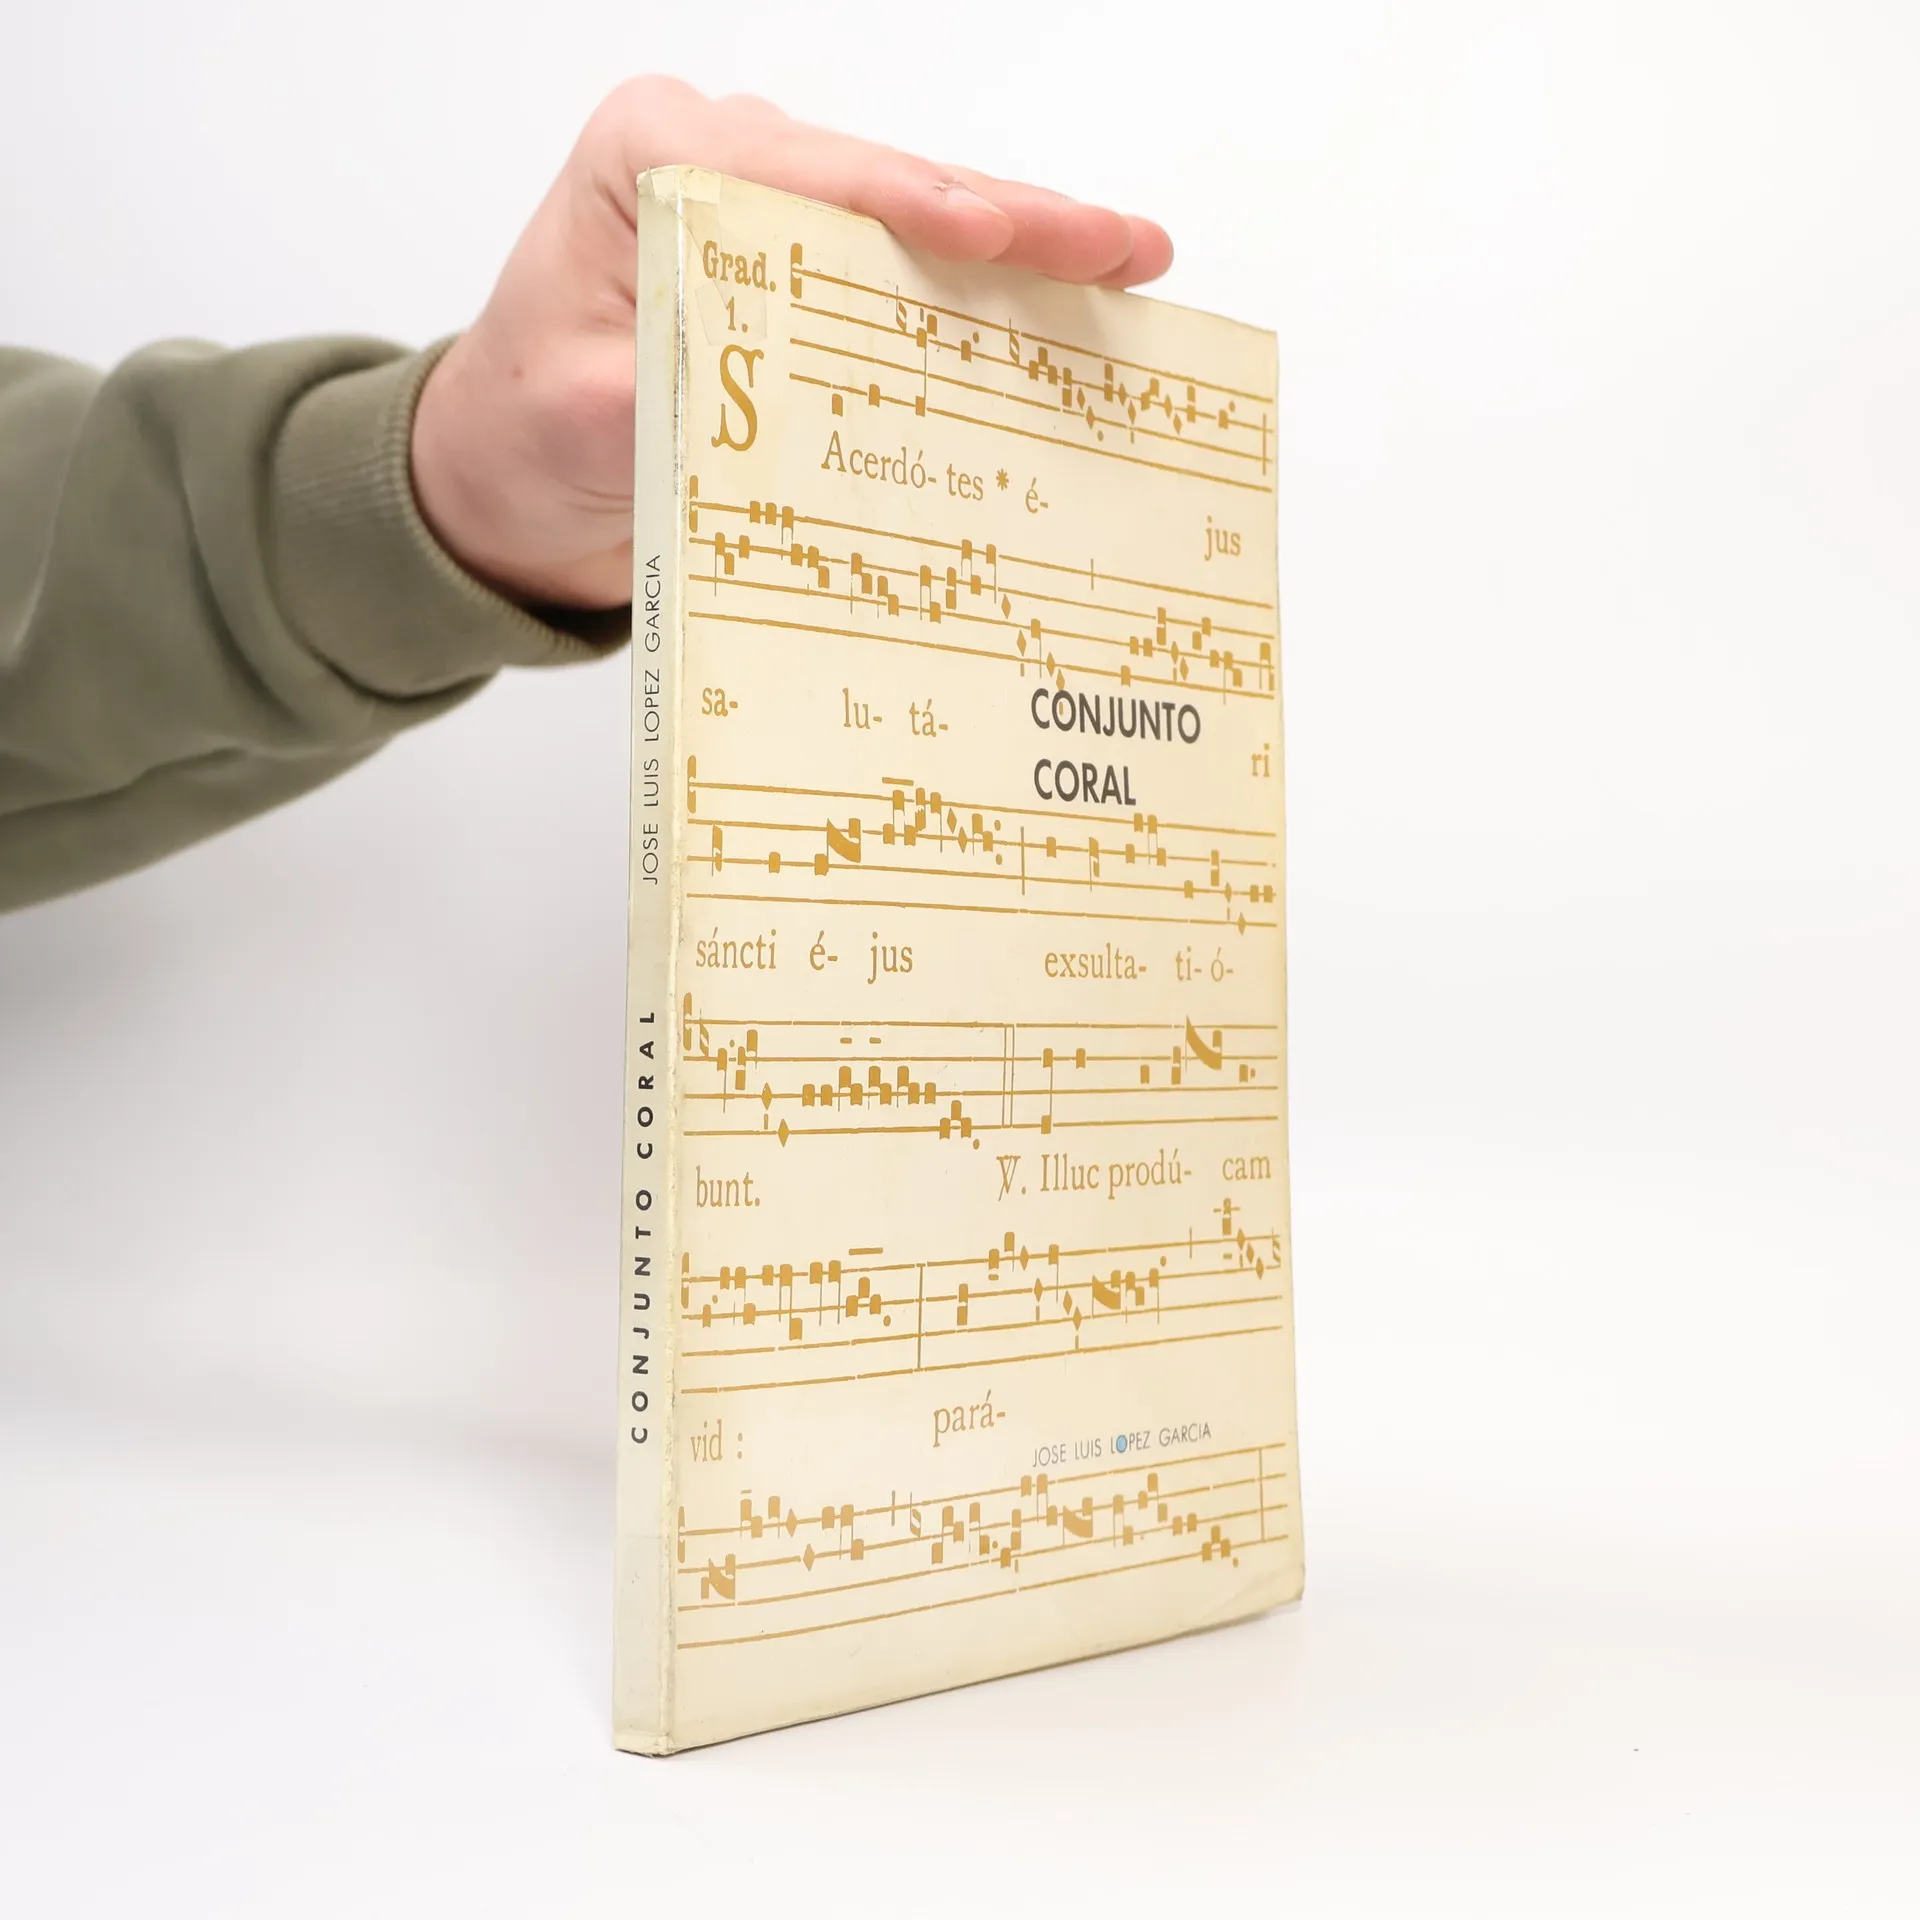 Grad.
1.
S
Acerdó- tes * é-
jus
sa- lu- tá- ri
CONJUNTO
CORAL
sáncti é- jus exsulta- ti- ó-
bunt. ℣. Illuc prodú- cam
vid : pará-
JOSE LUIS LOPEZ GARCIA
CONJUNTO CORAL JOSE LUIS LOPEZ GARCIA